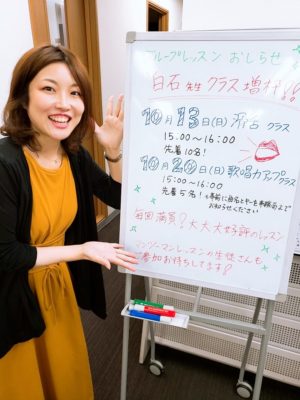 グループレッスン おしらせ
白石 先生 クラス増枠!!
10月13日(日)滑舌 クラス
15:00〜16:00
先着10名!
10月20日(日)歌唱力アップクラス
15:00〜16:00
先着5名!
お知らせください
毎回満員?大大大好評のレッスン
マンツーマンレッスンの生徒さんも
ご参加お待ちしてます!